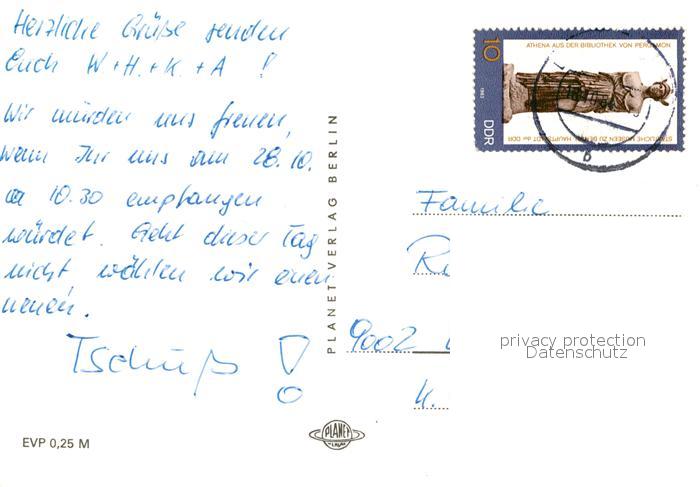 Herzliche Grüße senden
Euch W + H. + K. + A !
Wir würden uns freuen,
wenn Ihr uns am 28.10.
ca 10.30 empfangen
würdet. Geht dieser Tag
nicht, wählen wir einen
neuen.
Tschüß !
EVP 0,25 M
PLANET-VERLAG BERLIN
PLANET
VERLAG
10
ATHENA AUS DER BIBLIOTHEK VON PERGAMON
1982
DDR
STAATLICHE MUSEEN ZU BERLIN HAUPTSTADT der DDR
b
Familie
9002
K.
privacy protection
Datenschutz